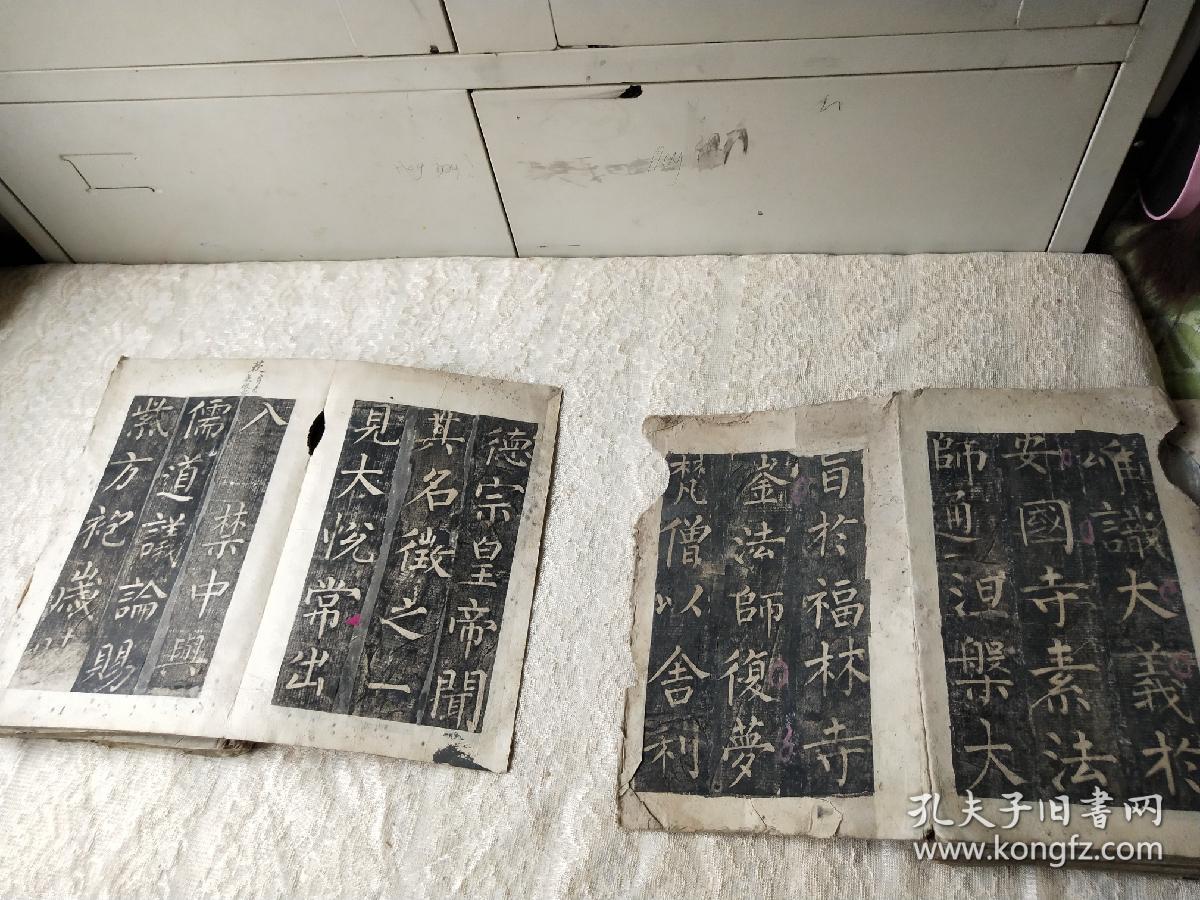 唯識大義於
安國寺素法
師通涅槃大
旨於福林寺
崟法師復夢
梵僧以舍利
德宗皇帝聞
其名徵之一
見大悅常出
入禁中與
儒道議論賜
紫方袍歲
孔夫子旧书网
www.kongfz.com